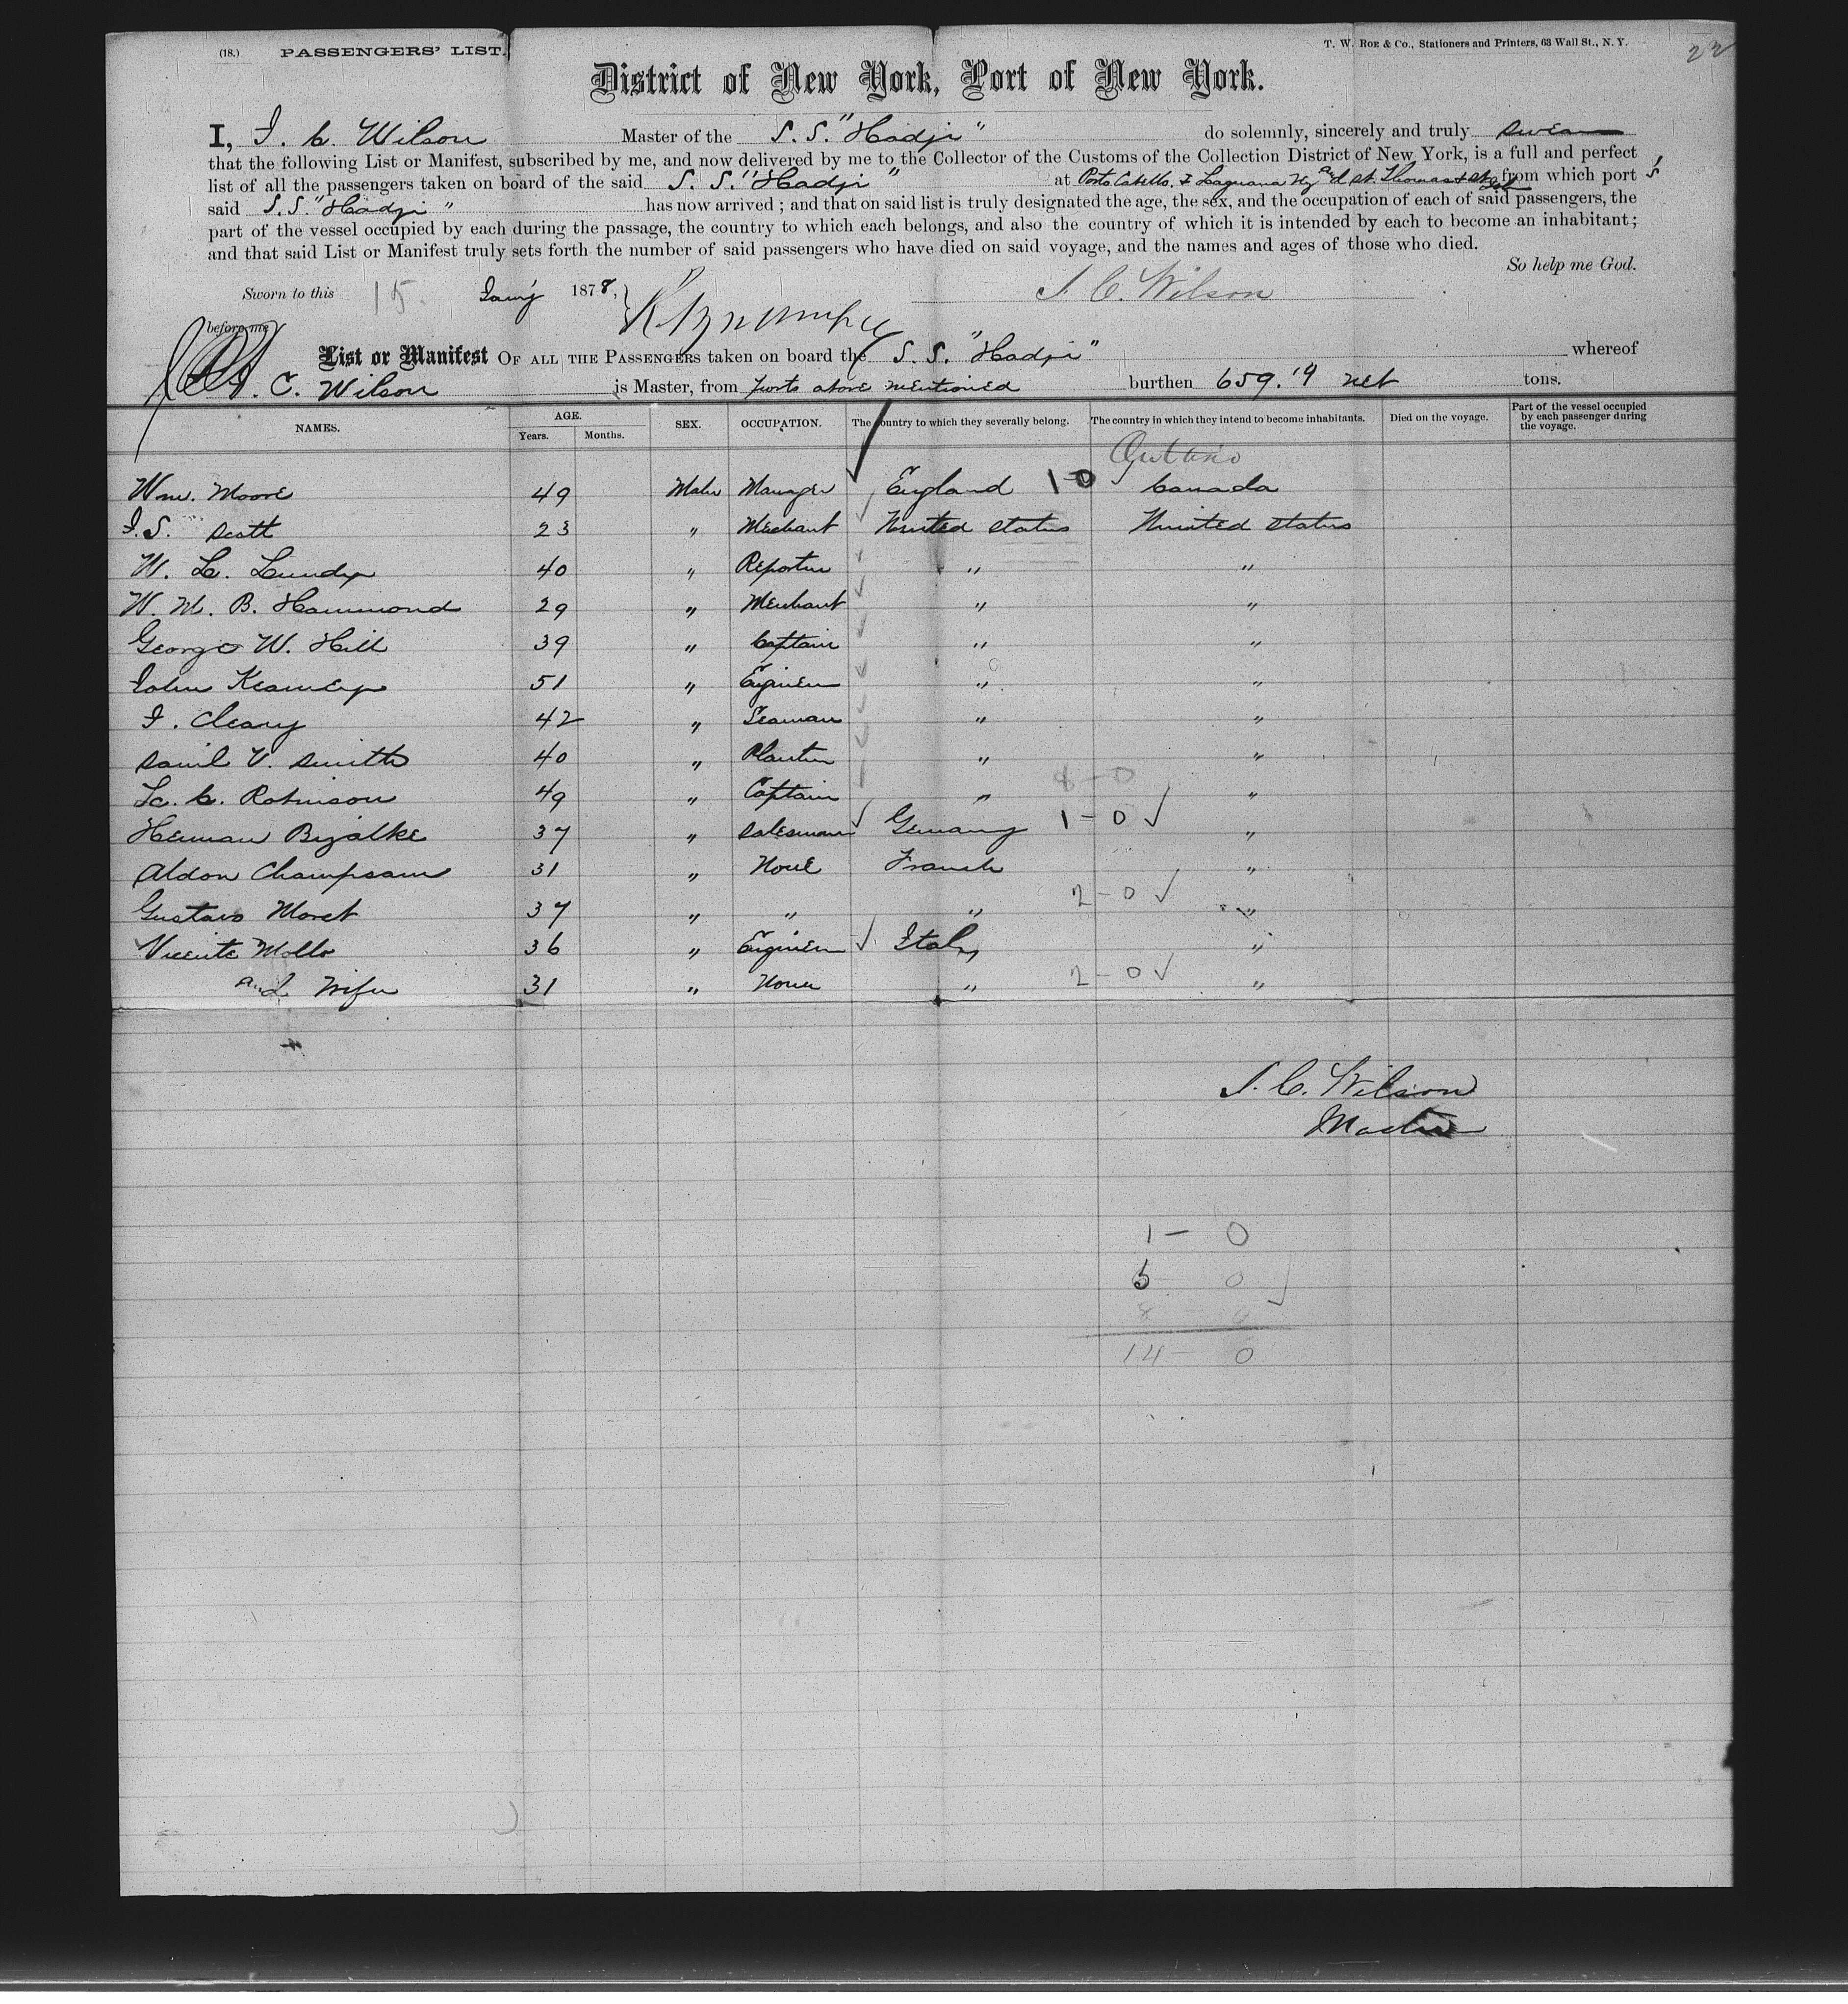 (18.) PASSENGERS' LIST. T. W. ROE & CO., Stationers and Printers, 63 Wall St., N. Y. 22
District of New York, Port of New York.
I, J. C. Wilson Master of the S. S. "Hadji" do solemnly, sincerely and truly swear
that the following List or Manifest, subscribed by me, and now delivered by me to the Collector of the Customs of the Collection District of New York, is a full and perfect
list of all the passengers taken on board of the said S. S. "Hadji" at Porto Cabello, & Laguana St. Thomas from which port s,
said S. S. "Hadji" has now arrived; and that on said list is truly designated the age, the sex, and the occupation of each of said passengers, the
part of the vessel occupied by each during the passage, the country to which each belongs, and also the country of which it is intended by each to become an inhabitant;
and that said List or Manifest truly sets forth the number of said passengers who have died on said voyage, and the names and ages of those who died.
So help me God.
Sworn to this 15 Jany 1878, J. C. Wilson
before me
List or Manifest OF ALL THE PASSENGERS taken on board the S. S. "Hadji" whereof
J. C. Wilson is Master, from ports above mentioned burthen 659.19 net tons.
NAMES. AGE. Years. Months. SEX. OCCUPATION. The country to which they severally belong. The country in which they intend to become inhabitants. Died on the voyage. Part of the vessel occupied by each passenger during the voyage.
Ontario
Wm. Moore 49 Male Manager England 1-0 Canada
J. S. Scott 23 " Mechant United States United States
W. L. Lundy 40 " Reporter " "
W. M. B. Hammond 29 " Merchant " "
George W. Hill 39 " Captain " "
John Kearney 51 " Engineer " "
J. Cleary 42 " Seaman " "
Daniel V. Smith 40 " Planter " "
L. C. Robinson 49 " Captain " 8-0 "
Herman Bizalke 37 " Salesman Germany 1-0 "
Aldon Champsaur 31 " None French "
Gustavo Moret 37 " " " 2-0 "
Vicente Mollo 36 " Engineer Italy "
and Wife 31 " None " 2-0 "
J. C. Wilson
Master
1 - 0
5 0
8 0
14 - 0